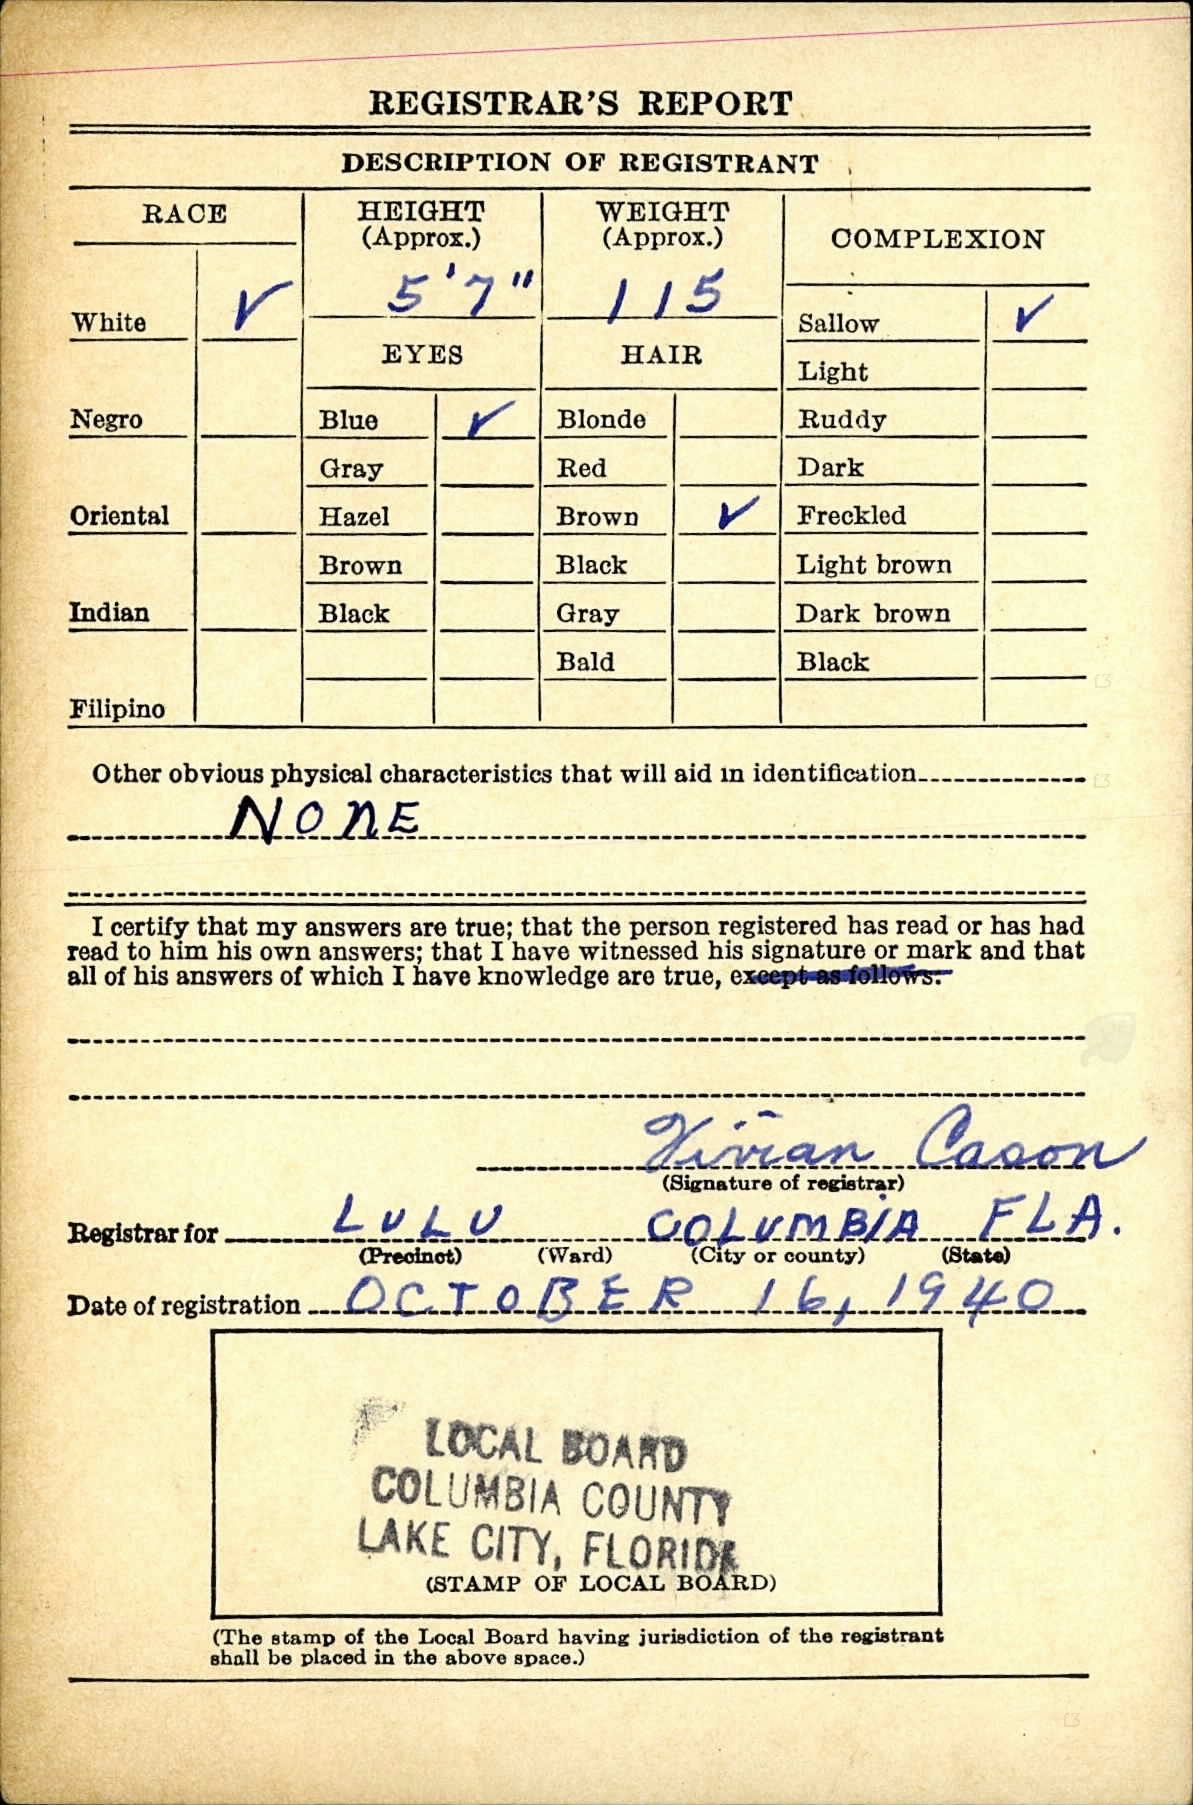 REGISTRAR'S REPORT
DESCRIPTION OF REGISTRANT
RACE HEIGHT (Approx.) WEIGHT (Approx.) COMPLEXION
White ✓ 5'7" 115 Sallow ✓
EYES HAIR Light
Negro Blue ✓ Blonde Ruddy
Gray Red Dark
Oriental Hazel Brown ✓ Freckled
Brown Black Light brown
Indian Black Gray Dark brown
Bald Black
Filipino
Other obvious physical characteristics that will aid in identification
NONE
I certify that my answers are true; that the person registered has read or has had
read to him his own answers; that I have witnessed his signature or mark and that
all of his answers of which I have knowledge are true, except as follows:
Vivian Cason
(Signature of registrar)
Registrar for LULU COLUMBIA FLA.
(Precinct) (Ward) (City or county) (State)
Date of registration OCTOBER 16, 1940
LOCAL BOARD
COLUMBIA COUNTY
LAKE CITY, FLORIDA
(STAMP OF LOCAL BOARD)
(The stamp of the Local Board having jurisdiction of the registrant
shall be placed in the above space.)